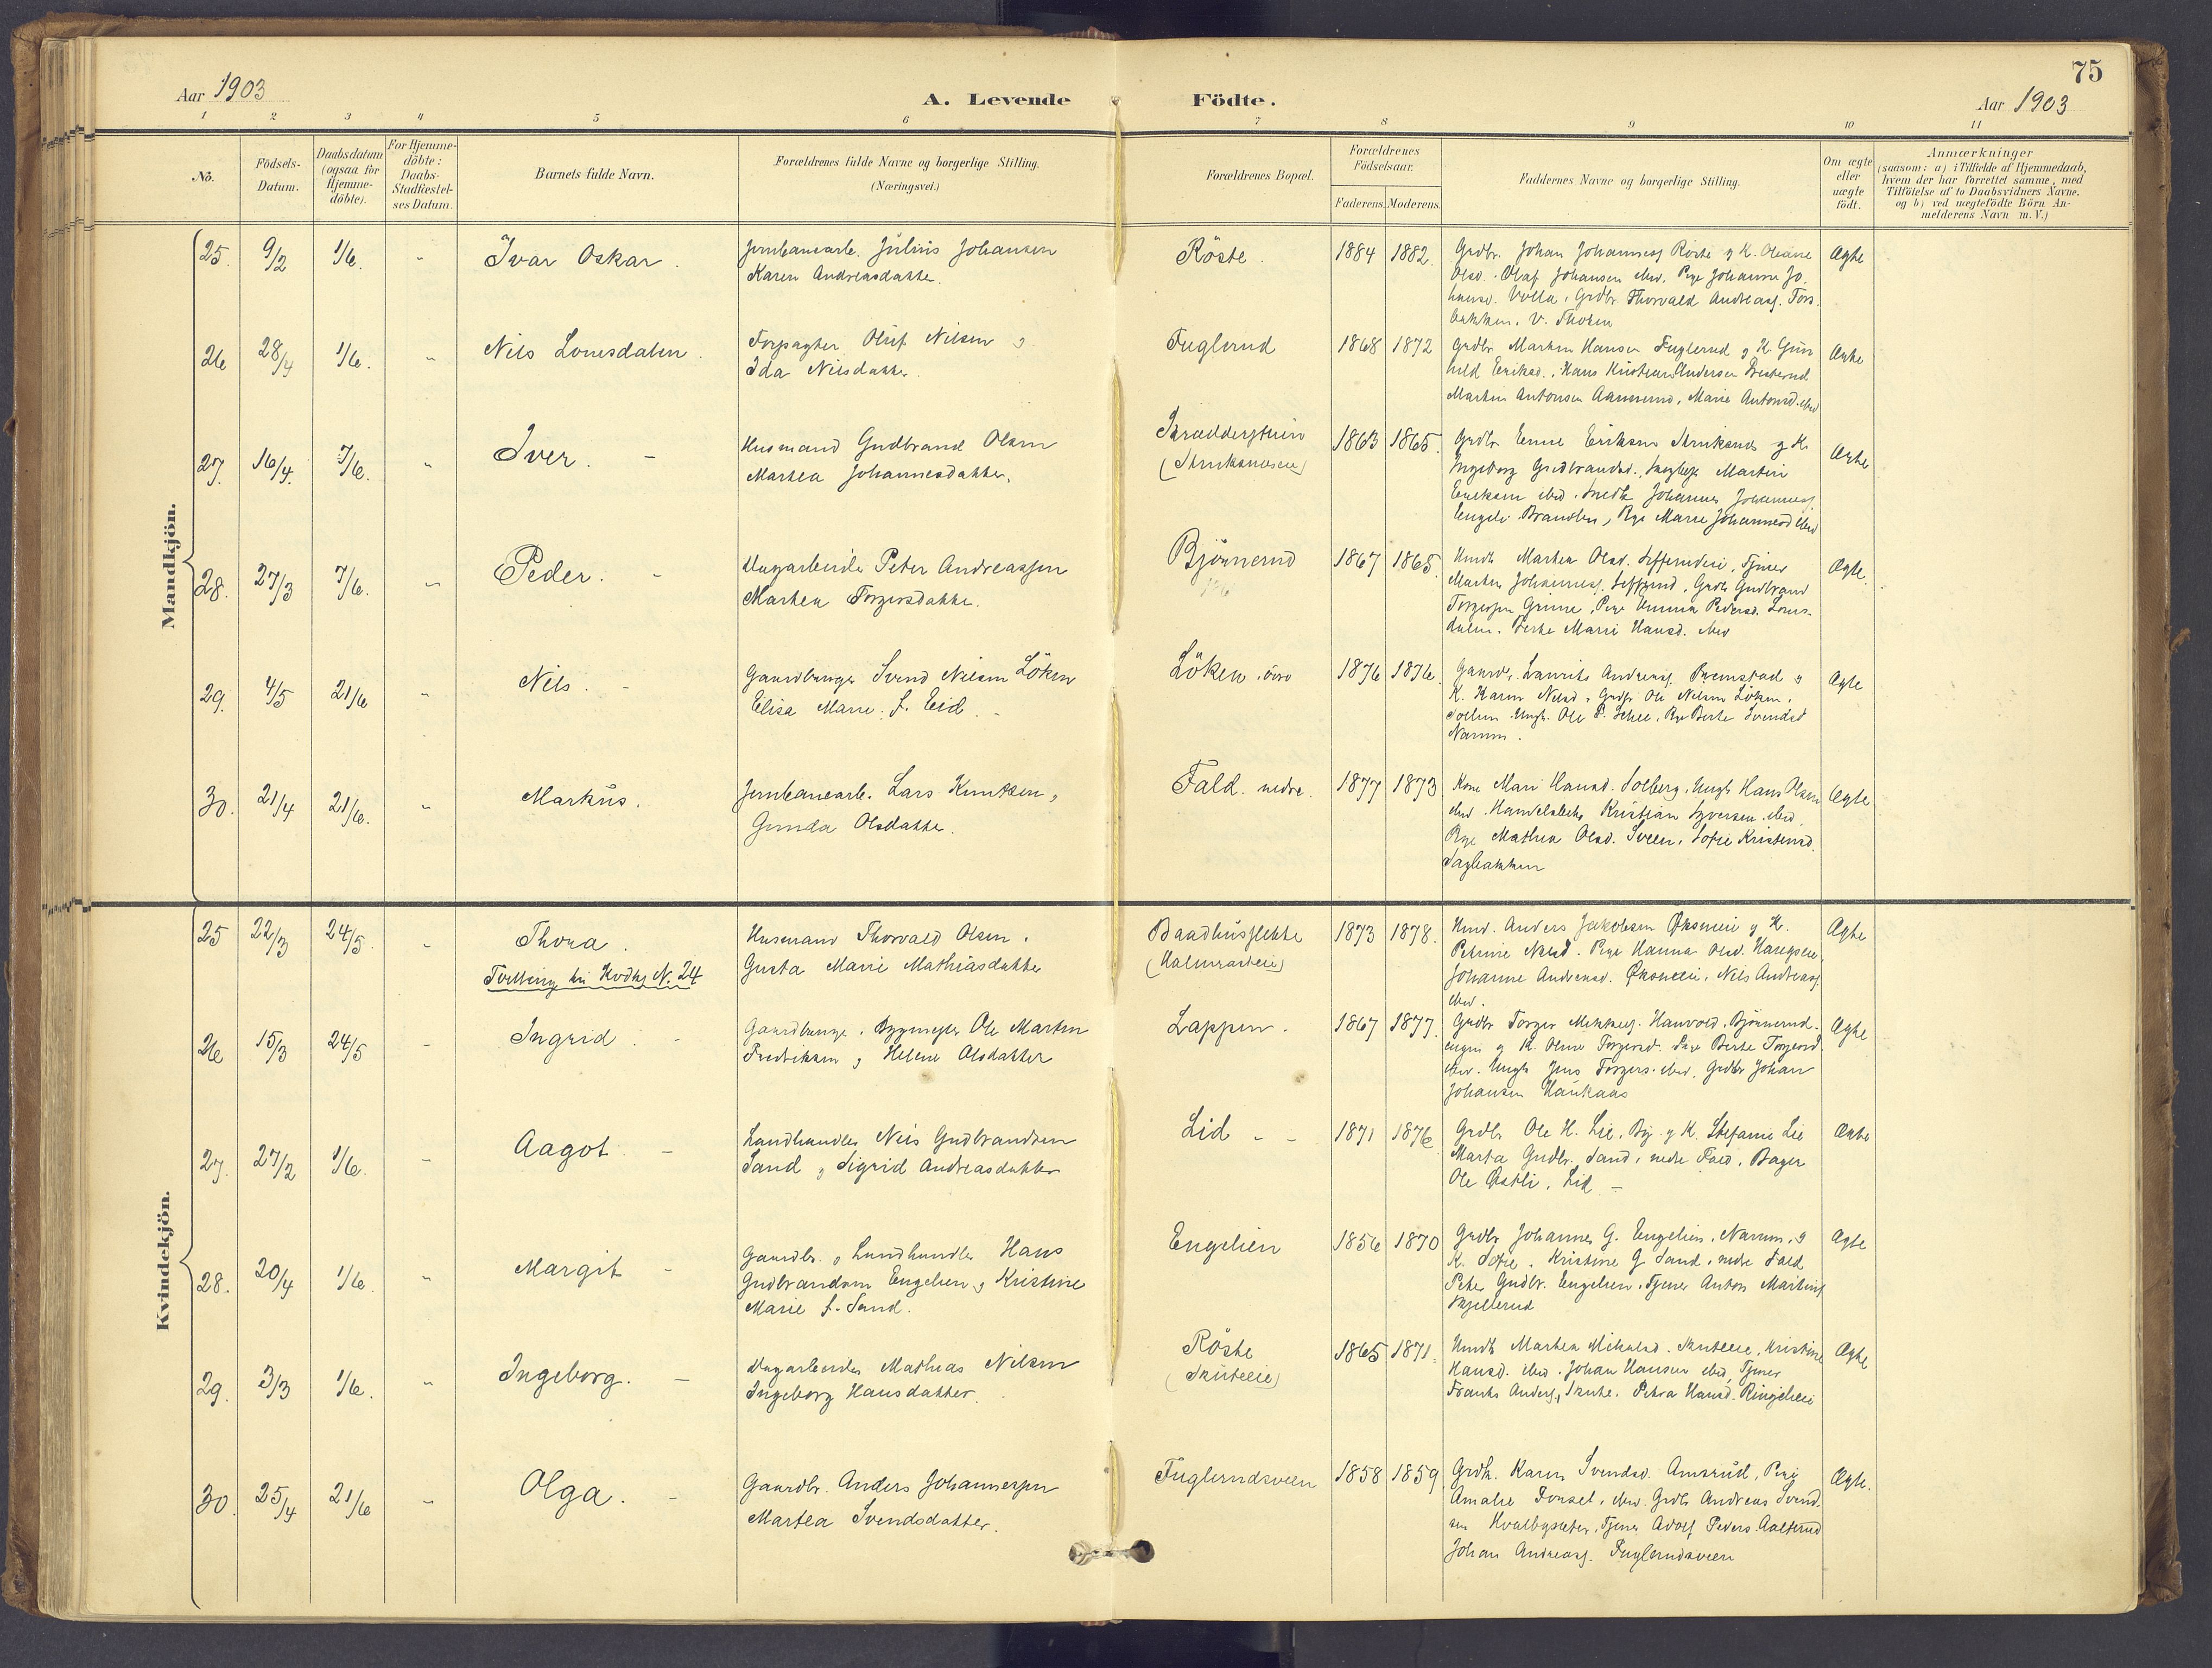 75
Aar 1903
A. Levende Födte.
Aar 1903
1 2 3 4 5 6 7 8 9 10 11
No.
Födsels-
Datum.
Daabsdatum
(ogsaa for
Hjemme-
döbte).
For Hjemme-
döbte:
Daabs-
Stadfæstel-
ses Datum.
Barnets fulde Navn.
Forældrenes fulde Navne og borgerlige Stilling.
(Næringsvei.)
Forældrenes Bopæl.
Forældrenes
Födselsaar.
Faderens. Moderens.
Faddernes Navne og borgerlige Stilling.
Om ægte
eller
uægte
födt.
Anmærkninger
(saasom: a) i Tilfælde af Hjemmedaab,
hvem der har forrettet samme, med
Tilföielse af to Daabsvidners Navne.
og b) ved uægtefödte Börn An-
melderens Navn m.V.)
Mandkjön.
25. 9/2 1/6. " Ivar Oskar.
Jernbanearb. Julius Johansen
Karen Andreasdatter.
Röste. 1884 1882.
Grdbr. Johan Johanness. Röste og K. Oleane
Olsd. Olaf Johansen ibid. Pige Johanne Jo-
hansd. Volla, Grdbr. Thorvald Andreass. Tors-
bakken. V. Thoten
Ægte
26 28/4 1/6. " Nils Lonesdalen.
Forpagter Oluf Nilsen og
Ida Nilsdatter.
Fuglerud 1868 1872
Grdbr Martin Hansen Fuglerud og K. Gun
hild Eriksd., Hans Kristian Andersen
Martin Antonsen Aamerud, Marie Antonsd. ibid
Ægte
27. 16/4. 7/6. " Iver. -
Husmand Gudbrand Olsen
Marthea Johannesdatter.
1863 1865.
Grdbr Eriksen og K.
Ingeborg Gudbrandsd., Martin
Eriksen ibid. Johannes Johanness
Pige Marie Johannesd ibid
Ægte
28. 27/3 7/6. " Peder. -
Dagarbeider Peter Andreassen
Marthea Torgersdatter.
Björnerud 1867 1865.
Marthea Olsd. Tjener
Martin Johanness. Grdbr Gudbrand
Torgersen Grime, Pige Emma Pedersd. Lones-
dalen. Berthe Marie Hansd. ibid
Ægte.
29. 4/5 21/6 " Nils. -
Gaardbruger Svend Nilsen Löken
Elise Marie f. Eid. -
Löken övre 1876 1876.
Gaardbr. Laurits Andreass. og
K. Karen Nilsd. Grdbr. Ole Nilsen Löken,
Ungk. Ole P. Pige Berte Svendsd
Narum.
Ægte
30. 21/4 21/6. " Markus.
Jernbanearb. Lars Knutsen,
Gunda Olsdatter.
Fald. nedre. 1877 1873
Kone Mari Hansd. Solberg, Ungk Hans Olsen
ibid. Kristian Syversen ibid.
Pige Mathea Olsd. Sveen, Sofie Kristensd.
Sagbakken
Ægte
Kvindekjön.
25 22/3 24/5. " Thora.
Tvilling til Kvdkj N. 24
Husmand Thorvald Olsen.
Gusta Marie Mathiasdatter
1873 1878.
Husmd. Anders Jakobsen og K.
Petrine Nilsd. Pige Hanna Olsd.
Johanne Andreasd. Nils Andreass.
ibid.
Ægte
26 15/3 24/5 - Ingrid. -
Gaardbruger. Bygmester Ole Martin
Fredriksen og Helene Olsdatter
Lappen. 1867 1877.
Grdbr Torger Mikkels. Hanvold, Björnerud-
engen og K. Oline Torgersd. Pige Berthe Torgersd.
ibid. Ungk Jens Torgers. ibid. Grdbr Johan
Johansen Haukaas
Ægte
27. 27/2 1/6. - Aagot -
Landhandler Nils Gudbrandsen
Sand og Sigrid Andreasdatter
Lid - - 1871 1876
Grdbr Ole H. Lie, og K. Stefanie Lie
Marta Gudbr. Sand, nedre Fald, Bager
Ole Østli. Lid -
Ægte
28. 20/4 1/6. " Margit -
Gaardbr. og Landhandler Hans
Gudbrandsen Engelien og Kristine
Marie f. Sand.
Engelien 1856 1870
Grdbr Johannes G. Engelien, Narum, og
K. Sofie. Kristine G Sand, nedre Fald
Peter Gudbr. Engelien, Tjener Anton Martins
Skjellerud
Ægte
29. 3/3 1/6. " Ingeborg. -
Dagarbeider Mathias Nilsen
Ingeborg Hansdatter.
Röste
(Skuteeie)
1865 1871.
Marthea Mikkelsd. Skuteeie, Kristine
Hansd. ibid. Johan Hansen ibid, Tjener
Frants Anders., Skute. Petra Hansd. Ringelieie
Ægte
30. 25/4 21/6 " Olga. -
Gaardbr. Anders Johannessen
Marthea Svendsdatter.
Fuglerudsveen 1858 1859
Grdk. Karen Svendsd. Amsrud, Pige
Amalie Fonsel, ibid. Grdbr Andreas Svend-
sen Hvalbysæter, Tjener Adolf Peders. Aalterud
Johan Andreass. Fuglerudsveen
Ægte.